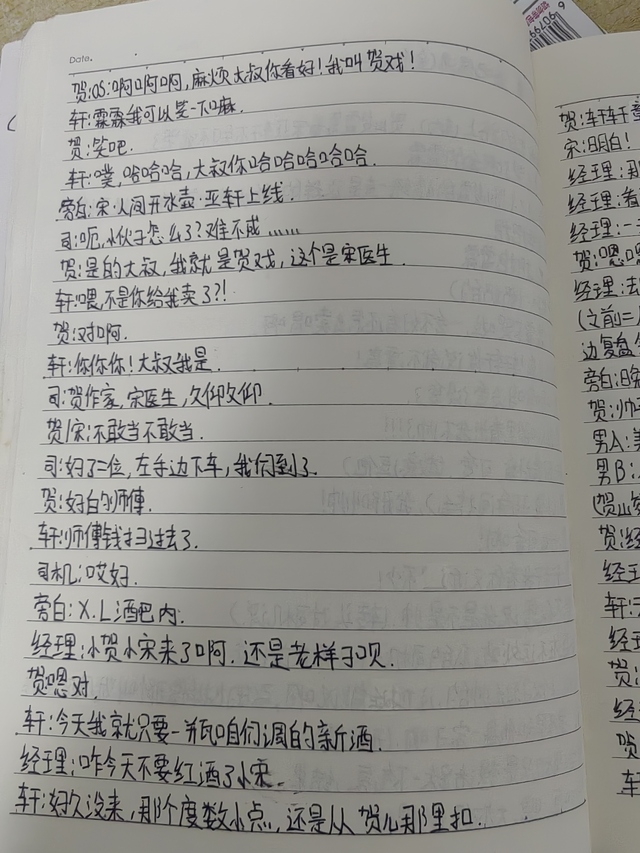 Date.
贺:OS:啊啊啊,麻烦大叔你看好!我叫贺戏!
轩:霖霖我可以笑一下嘛.
贺:笑吧.
轩:噗,哈哈哈,大叔你哈哈哈哈哈哈.
旁白:宋·人间开水壶·亚轩上线.
司:呃,小伙子怎么了?难不成......
贺:是的大叔,我就是贺戏,这个是宋医生.
轩:喂,不是你给我卖了?!
贺:对啊.
轩:你你你!大叔我是.
司:贺作家,宋医生,久仰久仰.
贺/宋:不敢当不敢当.
司:好了二位,左手边下车,我们到了.
贺:好的师傅.
轩:师傅钱扫过去了.
司机:哎好.
旁白:X.L酒吧内.
经理:小贺小宋来了啊.还是老样子呗.
贺:嗯对.
轩:今天我就只要一瓶咱们调的新酒.
经理:咋今天不要红酒了小宋.
轩:好久没来,那个度数小点,还是从贺儿那里扣.
贺:轩轩
宋:明白!
经理:
经理:看
经理:一
贺:嗯嗯
经理:去
(文前二
边复盘
旁白:晚
贺:帅
男A:美
男B:
贺:经
经理
轩:
经理
贺:
经理
贺
轩